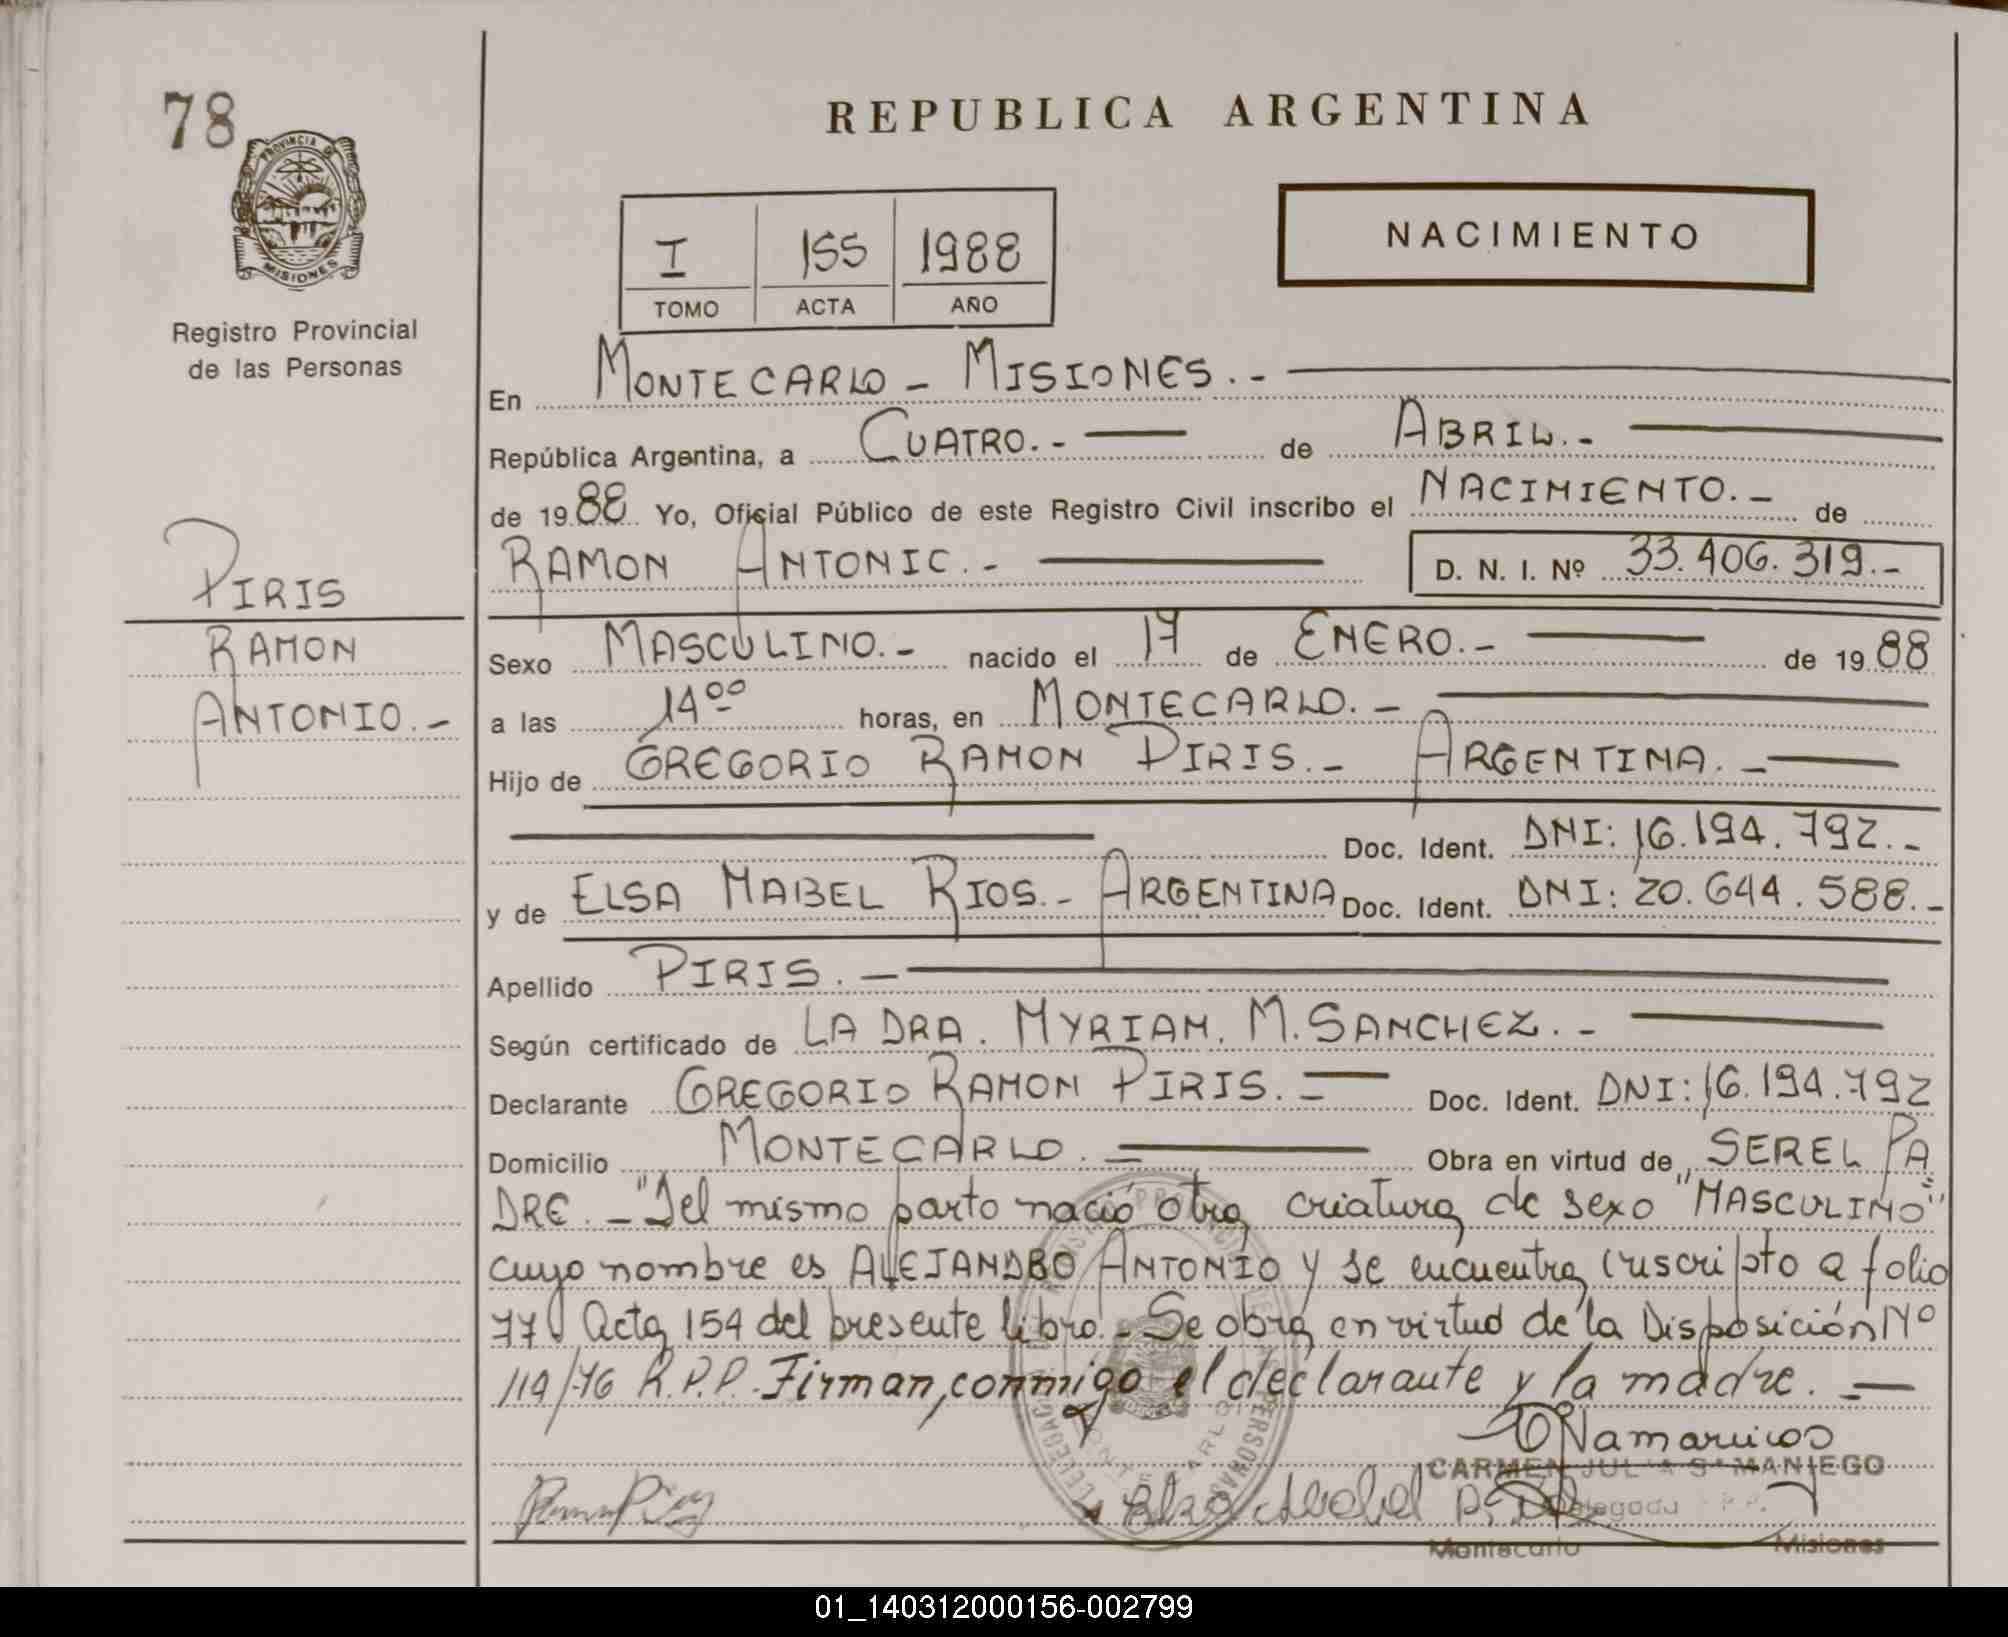 78
PROVINCIA DE
MISIONES
Registro Provincial
de las Personas
PIRIS
RAMON
ANTONIO.-
REPUBLICA ARGENTINA
I 155 1988
TOMO ACTA AÑO
NACIMIENTO
En MONTECARLO - MISIONES.-
República Argentina, a CUATRO.- de ABRIL.-
de 1988 Yo, Oficial Público de este Registro Civil inscribo el NACIMIENTO.- de
RAMON ANTONIO.- D. N. I. Nº 33.406.319.-
Sexo MASCULINO.- nacido el 17 de ENERO.- de 1988
a las 14ºº horas, en MONTECARLO.-
Hijo de GREGORIO RAMON PIRIS.- ARGENTINA.-
Doc. Ident. DNI: 16.194.792.-
y de ELSA MABEL RIOS.- ARGENTINA Doc. Ident. DNI: 20.644.588.-
Apellido PIRIS.-
Según certificado de LA DRA. MYRIAM. M. SANCHEZ.-
Declarante GREGORIO RAMON PIRIS.= Doc. Ident. DNI: 16.194.792
Domicilio MONTECARLO.= Obra en virtud de SER EL PA
DRE.-"Del mismo parto nació otra criatura de sexo "MASCULINO"
cuyo nombre es ALEJANDRO ANTONIO y se encuentra inscripto a folio
77 Acta 154 del presente libro.- Se obra en virtud de la Disposición Nº
114/76 R.P.P. Firman, conmigo el declarante y la madre.-
CARMEN JULIA SAMANIEGO
Elsa Mabel
Delegada
Montecarlo Misiones
01_140312000156-002799